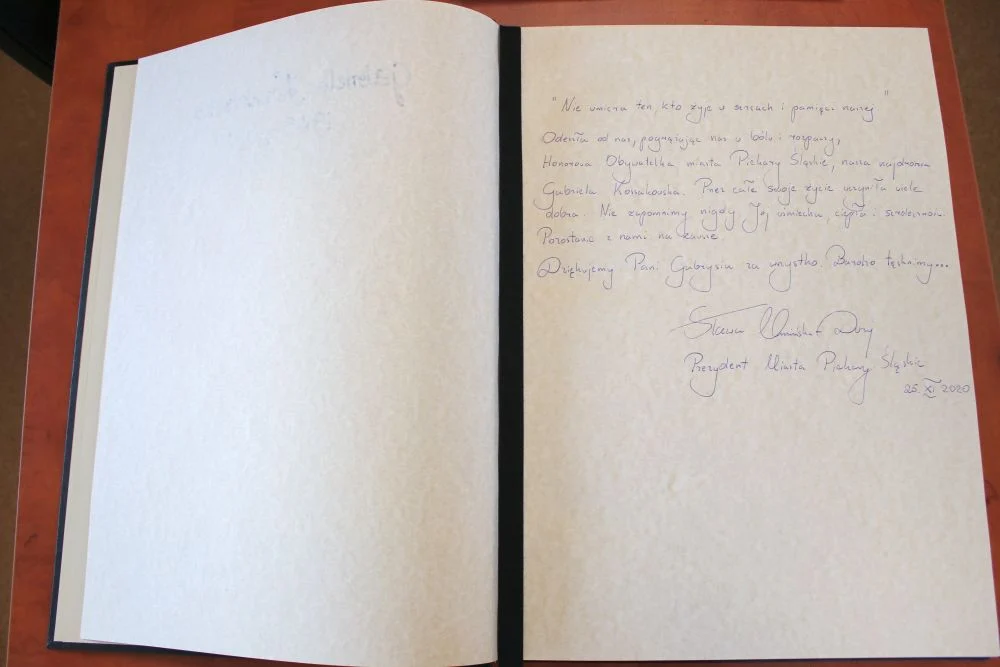 "Nie umiera ten, kto żyje w sercach i pamięci naszej"
Odeszła od nas, pogrążając nas w bólu i rozpaczy,
Honorowa Obywatelka miasta Piekary Śląskie, nasza najdroższa
Gabriela Kossakowska. Przez całe swoje życie uczyniła wiele
dobra. Nie zapomnimy nigdy Jej uśmiechu, ciepła i serdeczności.
Pozostanie z nami na zawsze.
Dziękujemy Pani Gabrysiu za wszystko. Bardzo tęsknimy...
Sława Umińska-Duraj
Prezydent Miasta Piekary Śląskie
25.XI.2020